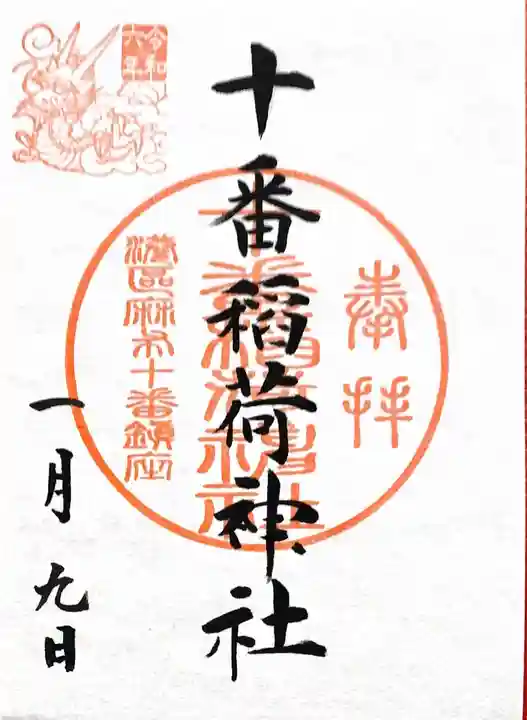 奉拝
十番稲荷神社
港區麻布十番鎮座
令和
六年
一月九日